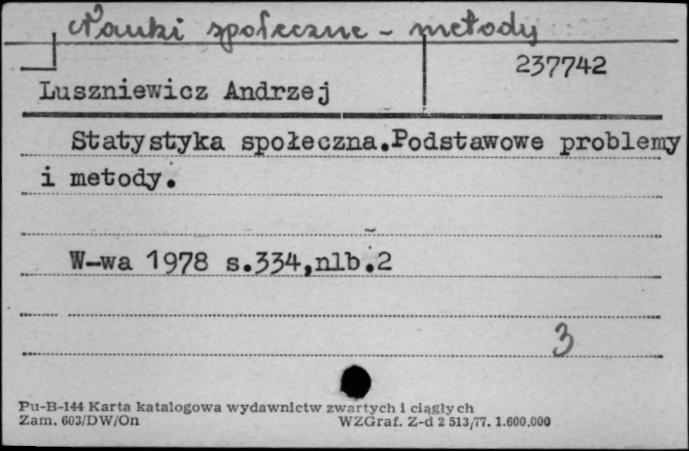 Nauki społeczne - metody
237742
Luszniewicz Andrzej
Statystyka społeczna.Podstawowe problemy
i metody.
W-wa 1978 s.334,nlb.2
3
Pu-B-144 Karta katalogowa wydawnictw zwartych i ciągłych
Zam. 603/DW/On WZGraf. Z-d 2 513/77. 1.600.000